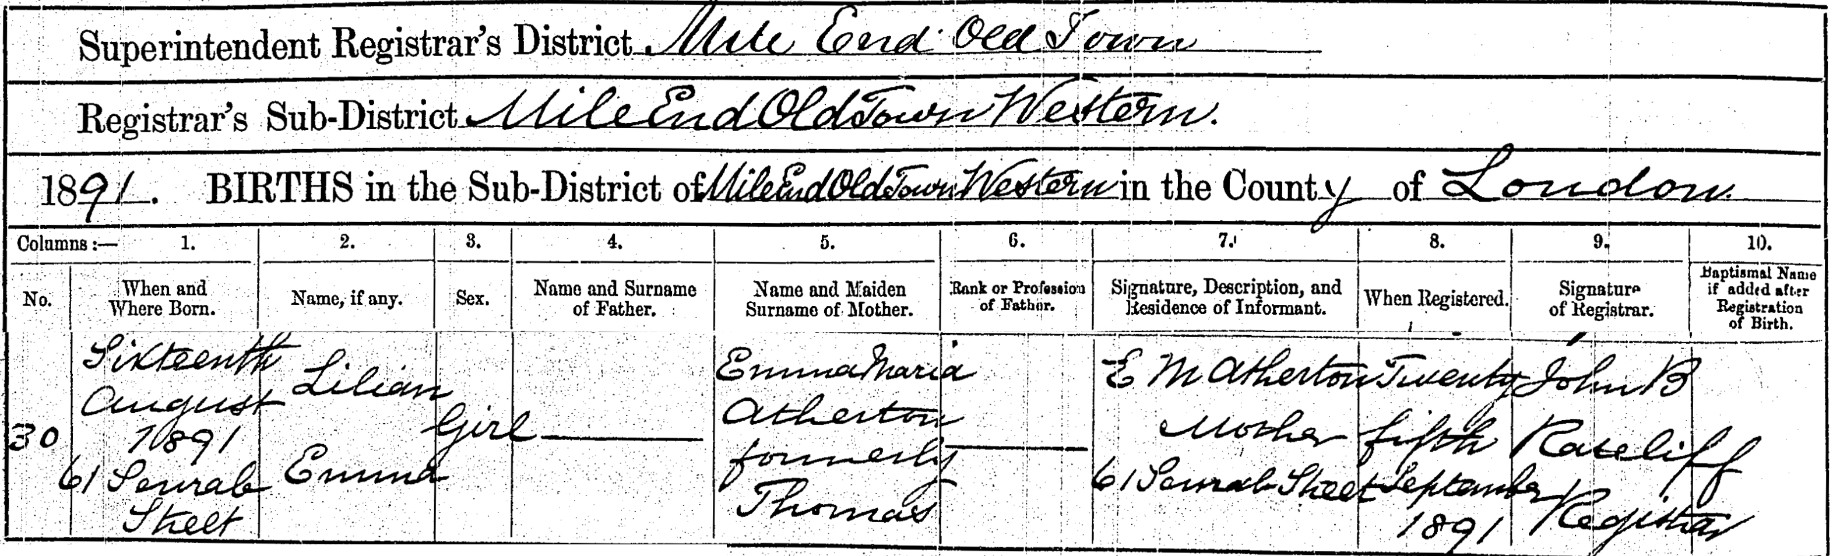 Superintendent Registrar's District Mile End Old Town
Registrar's Sub-District Mile End Old Town Western.
1891. BIRTHS in the Sub-District of Mile End Old Town Western in the County of London.
Columns :— 1. 2. 3. 4. 5. 6. 7. 8. 9. 10.
No.
When and
Where Born.
Name, if any.
Sex.
Name and Surname
of Father.
Name and Maiden
Surname of Mother.
Rank or Profession
of Father.
Signature, Description, and
Residence of Informant.
When Registered.
Signature
of Registrar.
Baptismal Name
if added after
Registration
of Birth.
30
Sixteenth
August
1891
61
Street
Lilian
Emma
Girl
Emma Maria
Atherton
formerly
Thomas
E M Atherton
Mother
61 Street
Twenty
fifth
September
1891
John B
Ratcliff
Registrar